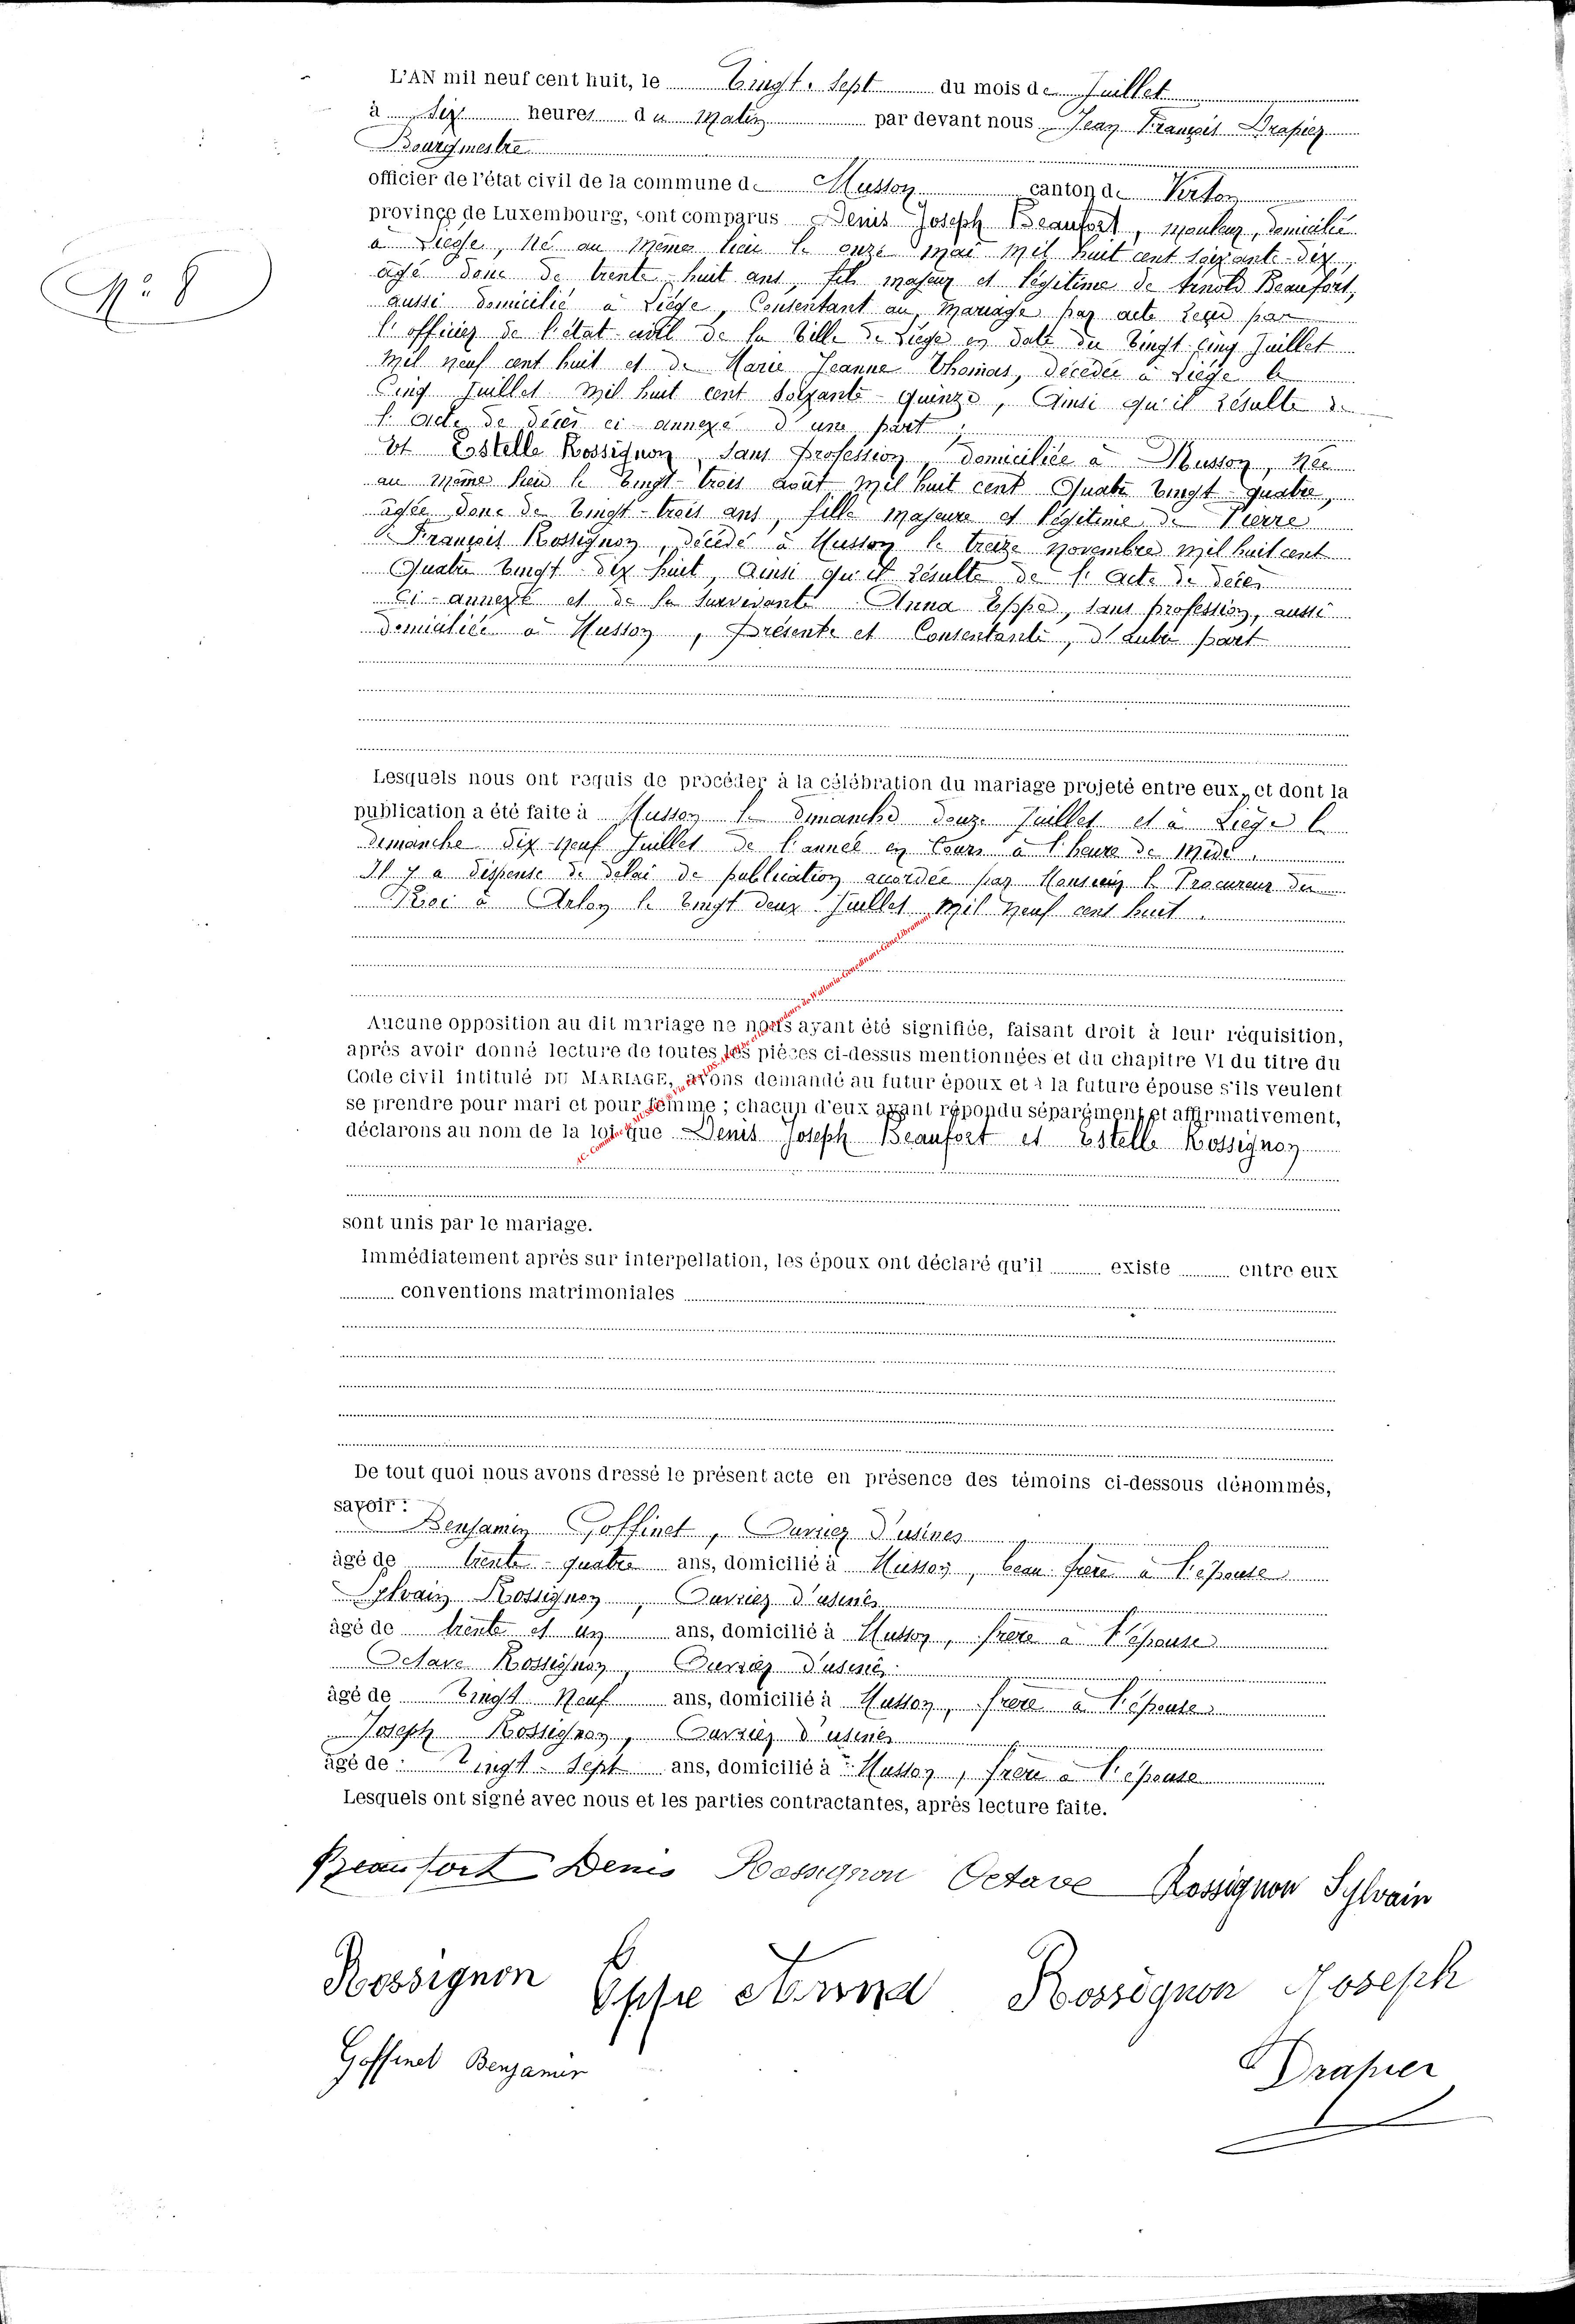 L'AN mil neuf cent huit, le Vingt-Sept du mois de Juillet
à dix heures du Matin par devant nous Jean François Drapier
Bourgmestre
officier de l'état civil de la commune de Musson canton de Virton
province de Luxembourg, sont comparus Denis Joseph Beaufort, mouleur, domicilié
N° 8
à Liège, né au même lieu le onze mai mil huit cent soixante-dix,
âgé donc de trente-huit ans, fils majeur et légitime de Arnold Beaufort,
aussi domicilié à Liège, Consentant au mariage par acte reçu par
l'officier de l'état-civil de la Ville de Liège en date du Vingt-cinq Juillet
mil neuf cent huit et de Marie Jeanne Thomas, décédée à Liège le
Cinq Juillet mil huit cent Soixante-quinze, Ainsi qu'il résulte de
l'acte de décès ci-annexé d'une part;
Et Estelle Rossignon, sans profession, domiciliée à Musson, Née
au même lieu le Vingt-trois août mil huit cent Quatre Vingt-quatre,
âgée donc de Vingt-trois ans, fille majeure et légitime de Pierre
François Rossignon, décédé à Musson le treize novembre mil huit cent
Quatre Vingt dix huit, Ainsi qu'il résulte de l'acte de décès
Ci-annexé et de la survivante Anna Eppe, sans profession, aussi
domiciliée à Musson, Présente et Consentante, d'autre part
Lesquels nous ont requis de procéder à la célébration du mariage projeté entre eux, et dont la
publication a été faite à Musson le dimanche douze Juillet et à Liège le
dimanche dix-neuf Juillet de l'année en Cours à l'heure de midi.
Il y a dispense de délai de publication accordée par Monsieur le Procureur du
Roi à Arlon le Vingt deux Juillet mil neuf cent huit.
Aucune opposition au dit mariage ne nous ayant été signifiée, faisant droit à leur réquisition,
après avoir donné lecture de toutes les pièces ci-dessus mentionnées et du chapitre VI du titre du
Code civil intitulé DU MARIAGE, avons demandé au futur époux et à la future épouse s'ils veulent
se prendre pour mari et pour femme ; chacun d'eux ayant répondu séparément et affirmativement,
déclarons au nom de la loi que Denis Joseph Beaufort et Estelle Rossignon
sont unis par le mariage.
Immédiatement après sur interpellation, les époux ont déclaré qu'il existe entre eux
conventions matrimoniales
De tout quoi nous avons dressé le présent acte en présence des témoins ci-dessous dénommés,
savoir :
Benjamin Goffinet, Ouvrier d'usines
âgé de trente-quatre ans, domicilié à Musson, beau-frère à l'épouse
Sylvain Rossignon, Ouvrier d'usines
âgé de trente et un ans, domicilié à Musson, frère à l'épouse
Octave Rossignon, Ouvrier d'usines
âgé de Vingt Neuf ans, domicilié à Musson, frère à l'épouse
Joseph Rossignon, Ouvrier d'usines
âgé de Vingt-Sept ans, domicilié à Musson, frère à l'épouse
Lesquels ont signé avec nous et les parties contractantes, après lecture faite.
Beaufort Denis Rossignon Octave Rossignon Sylvain
Rossignon Eppe Anna Rossignon Joseph
Goffinet Benjamin Drapier